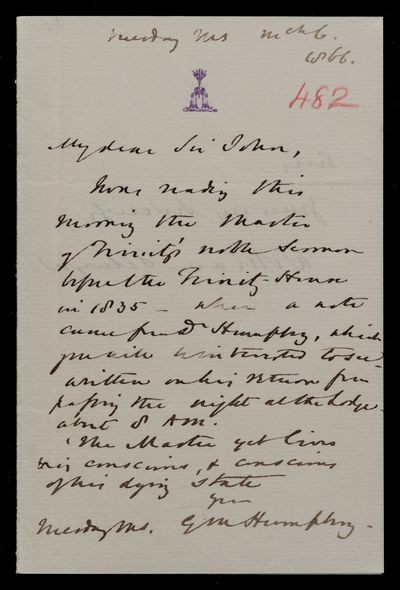 Tuesday Mg March 6.
1866.
482
My dear Sir John,
I was reading this
morning the Master
of Trinity's noble Sermon
before the Trinity-House
in 1835 – when a note
came from Dr Humphry, which
you will be interested to see
written on his return from
passing the night at the Lodge
about 8 AM.
"The Master yet lives
is conscious, & conscious
of his dying state
yrs
Tuesday Mg. G M Humphry-